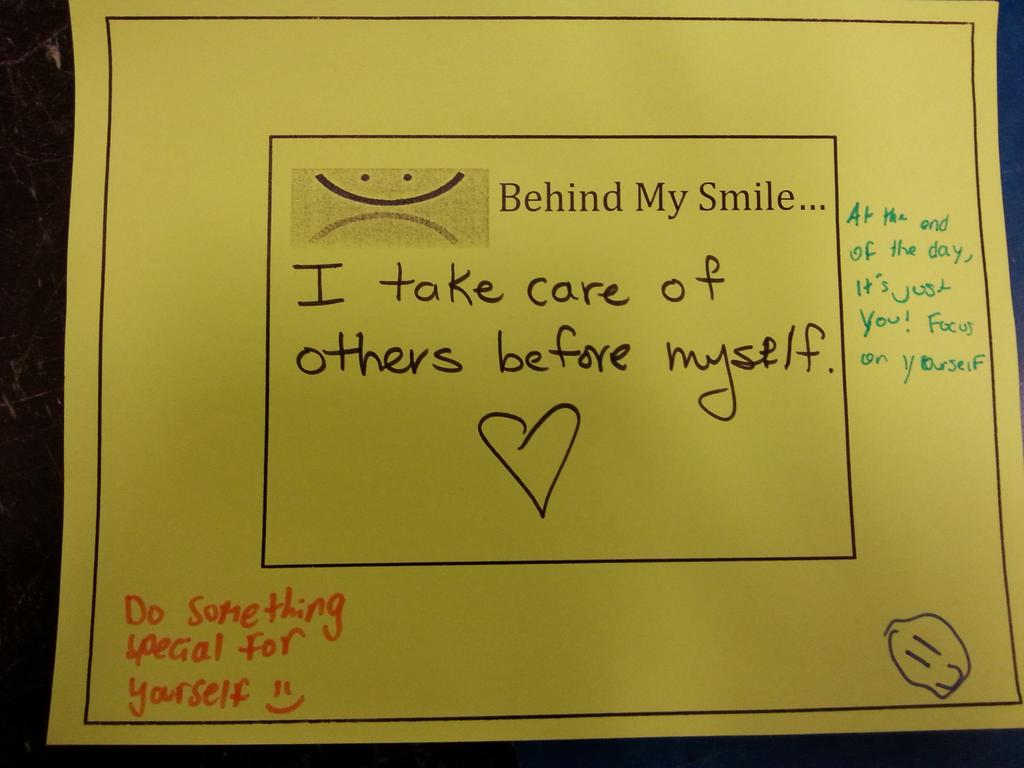 Behind My Smile...
I take care of
others before myself.
At the end
of the day,
It's just
You! Focus
on yourself
Do something
special for
yourself